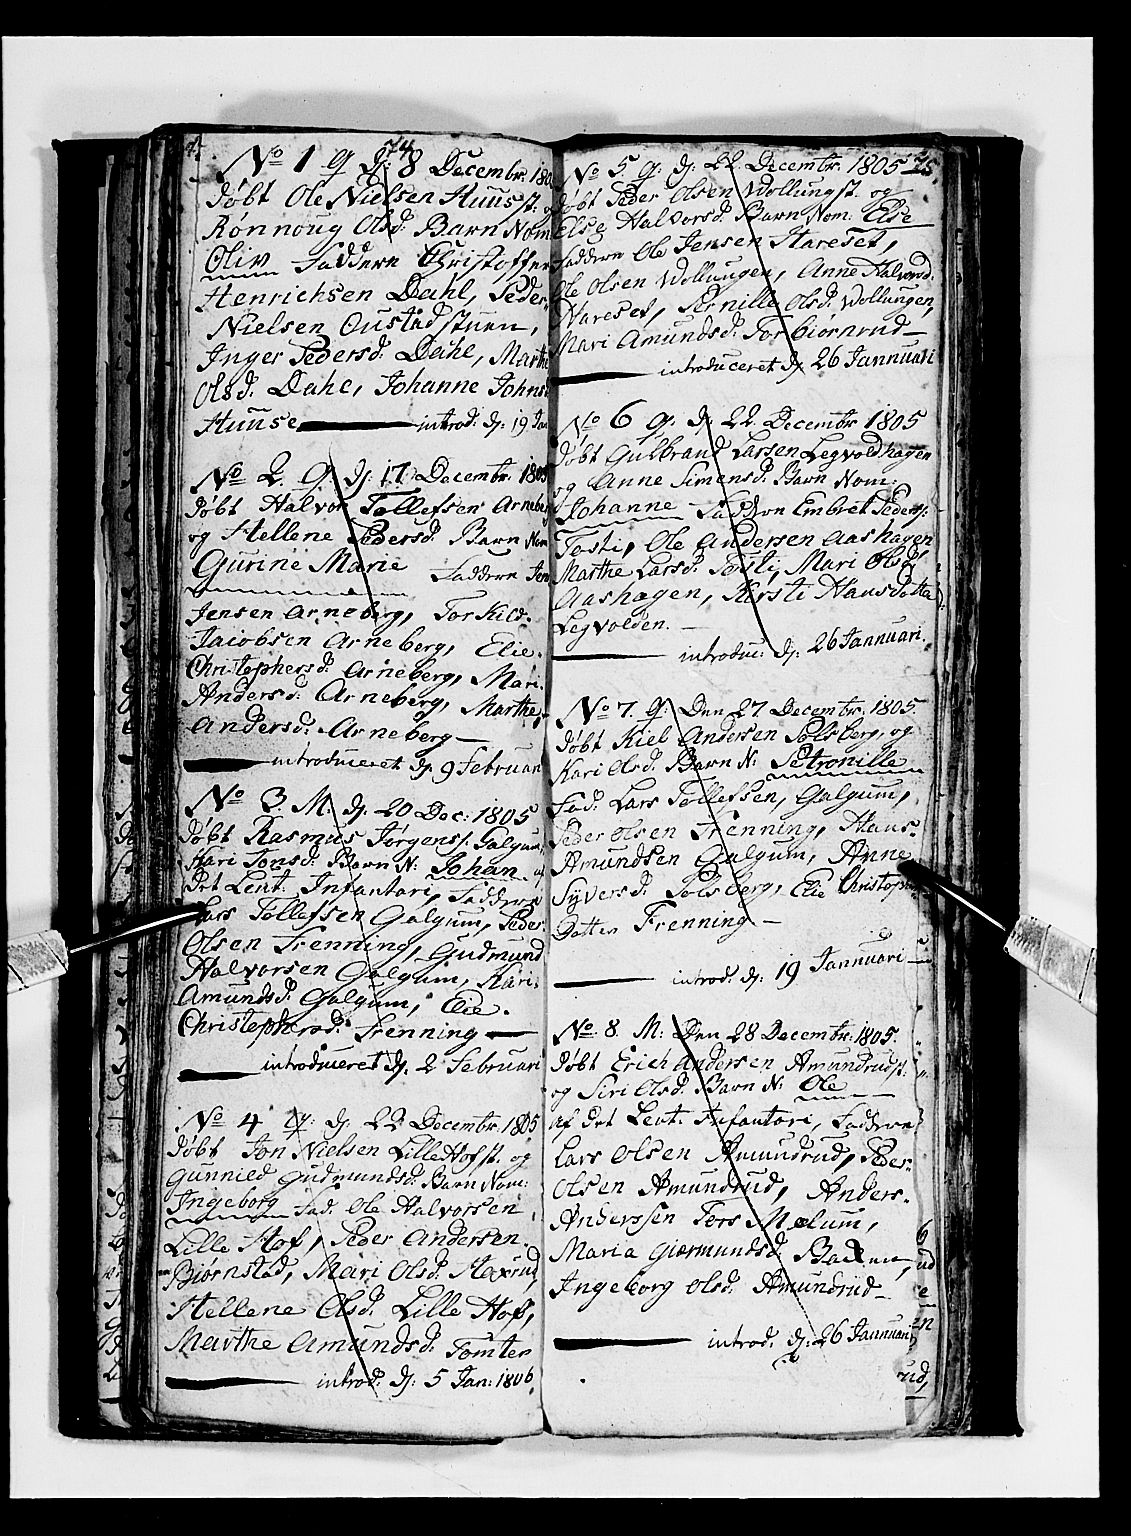 74
No 1 Q dj: 8 Decembr: 180
døbt Ole Nielsen Huus st. og
Rønnoug Olsd: Barn Nom
Oliv Faddere Christoffer
Henrichsen Dahl, Peder
Nielsen Oustad stuen,
Inger Pedersd: Dahl, Marthe
Olsd: Dahl, Johanne Johns
Huuse introd: dj: 19 Jan
No 2. Q. dj 17 Decembr: 1805
døbt Halvor Tollefsen Arneber
og Hellene Pedersd: Barn Nom
Gurine Marie Faddere Jen
Jensen Arneberg, Torkild
Jacobsen Arneberg, Elie
Christophersd: Arneberg, Mari
Andersd: Arneberg, Marthe
Andersd: Arneberg
introduceret dj 9 Februari
No 3. M. dj. 20 Dec: 1805
døbt Rasmus Jørgens: Galgum,
Kari Jonsd: Barn N: Johan af
det Lent: Infantari, Faddere
Lars Tollefsen Galgum, Peder
Olsen Frenning, Gudmund
Halvorsen Galgum, Kari
Amundsd: Galgum, Elie
Christophersd: Frenning
introduceret dj. 2 Februari
No 4 Q: dj. 22 Decembr: 1805
døbt Jon Nielsen Lille Hof st. og
Gunnild Gudmundsd: Barn Nom:
Ingeborg Fad: Ole Halvorsen
Lille Hof, Peder Andersen
Biørnstad, Mari Olsd:
Hellene Olsd: Lille Hof,
Marthe Amundsd: Tomter
introd: dj: 5 Jan: 1806
75.
No 5 Q: dj. 22. Decembr: 1805
døbt Peder Olsen Wollung st. og
Else Halvorsd: Barn Nom: Else
Faddere Ole Jensen Hareset,
Ole Olsen Wollungen, Anne Halvorsd:
Hareset, Pernille Olsd: Wollungen,
Mari Amundsd: Torbiørnrud
introduceret dj 26 Jannuari
No 6 Q. dj 22. Decembr 1805
døbt Gulbrand Larsen Legvoldhagen
og Anne Simensd: Barn Nom:
Johanne Faddere Embret Peders:
Tosti, Ole Andersen Aashagen
Marthe Larsd: Tosti, Mari Olsd:
Aashagen, Kersti Hansdotter
Legvolden.
introduc: dj: 26 Jannuari.
No 7. Q: Den 27 Decembr: 1805
døbt Kiel Andersen Solsberg, og
Kari Olsd: Barn N: Petronille
Fad: Lars Tollefsen, Galgum,
Peder Olsen Frenning, Hans
Amundsen Galgum, Anne
Syversd: Solsberg, Elie Christopher
Datter Frenning
introd: dj. 19 Jannuari
No 8. M: Den 28 Decembr: 1805.
døbt Erich Andersen Amundrud st:
og Siri Olsd: Barn N: Ole
af det Lent: Infantari, Faddere
Lars Olsen Amundrud, Peder
Olsen Amundrud, Anders
Anderssen Fors Mælum,
Maria Giermundsd: Backen,
Ingeborg Olsd: Amundrud
introd: dj: 26 Jannuari